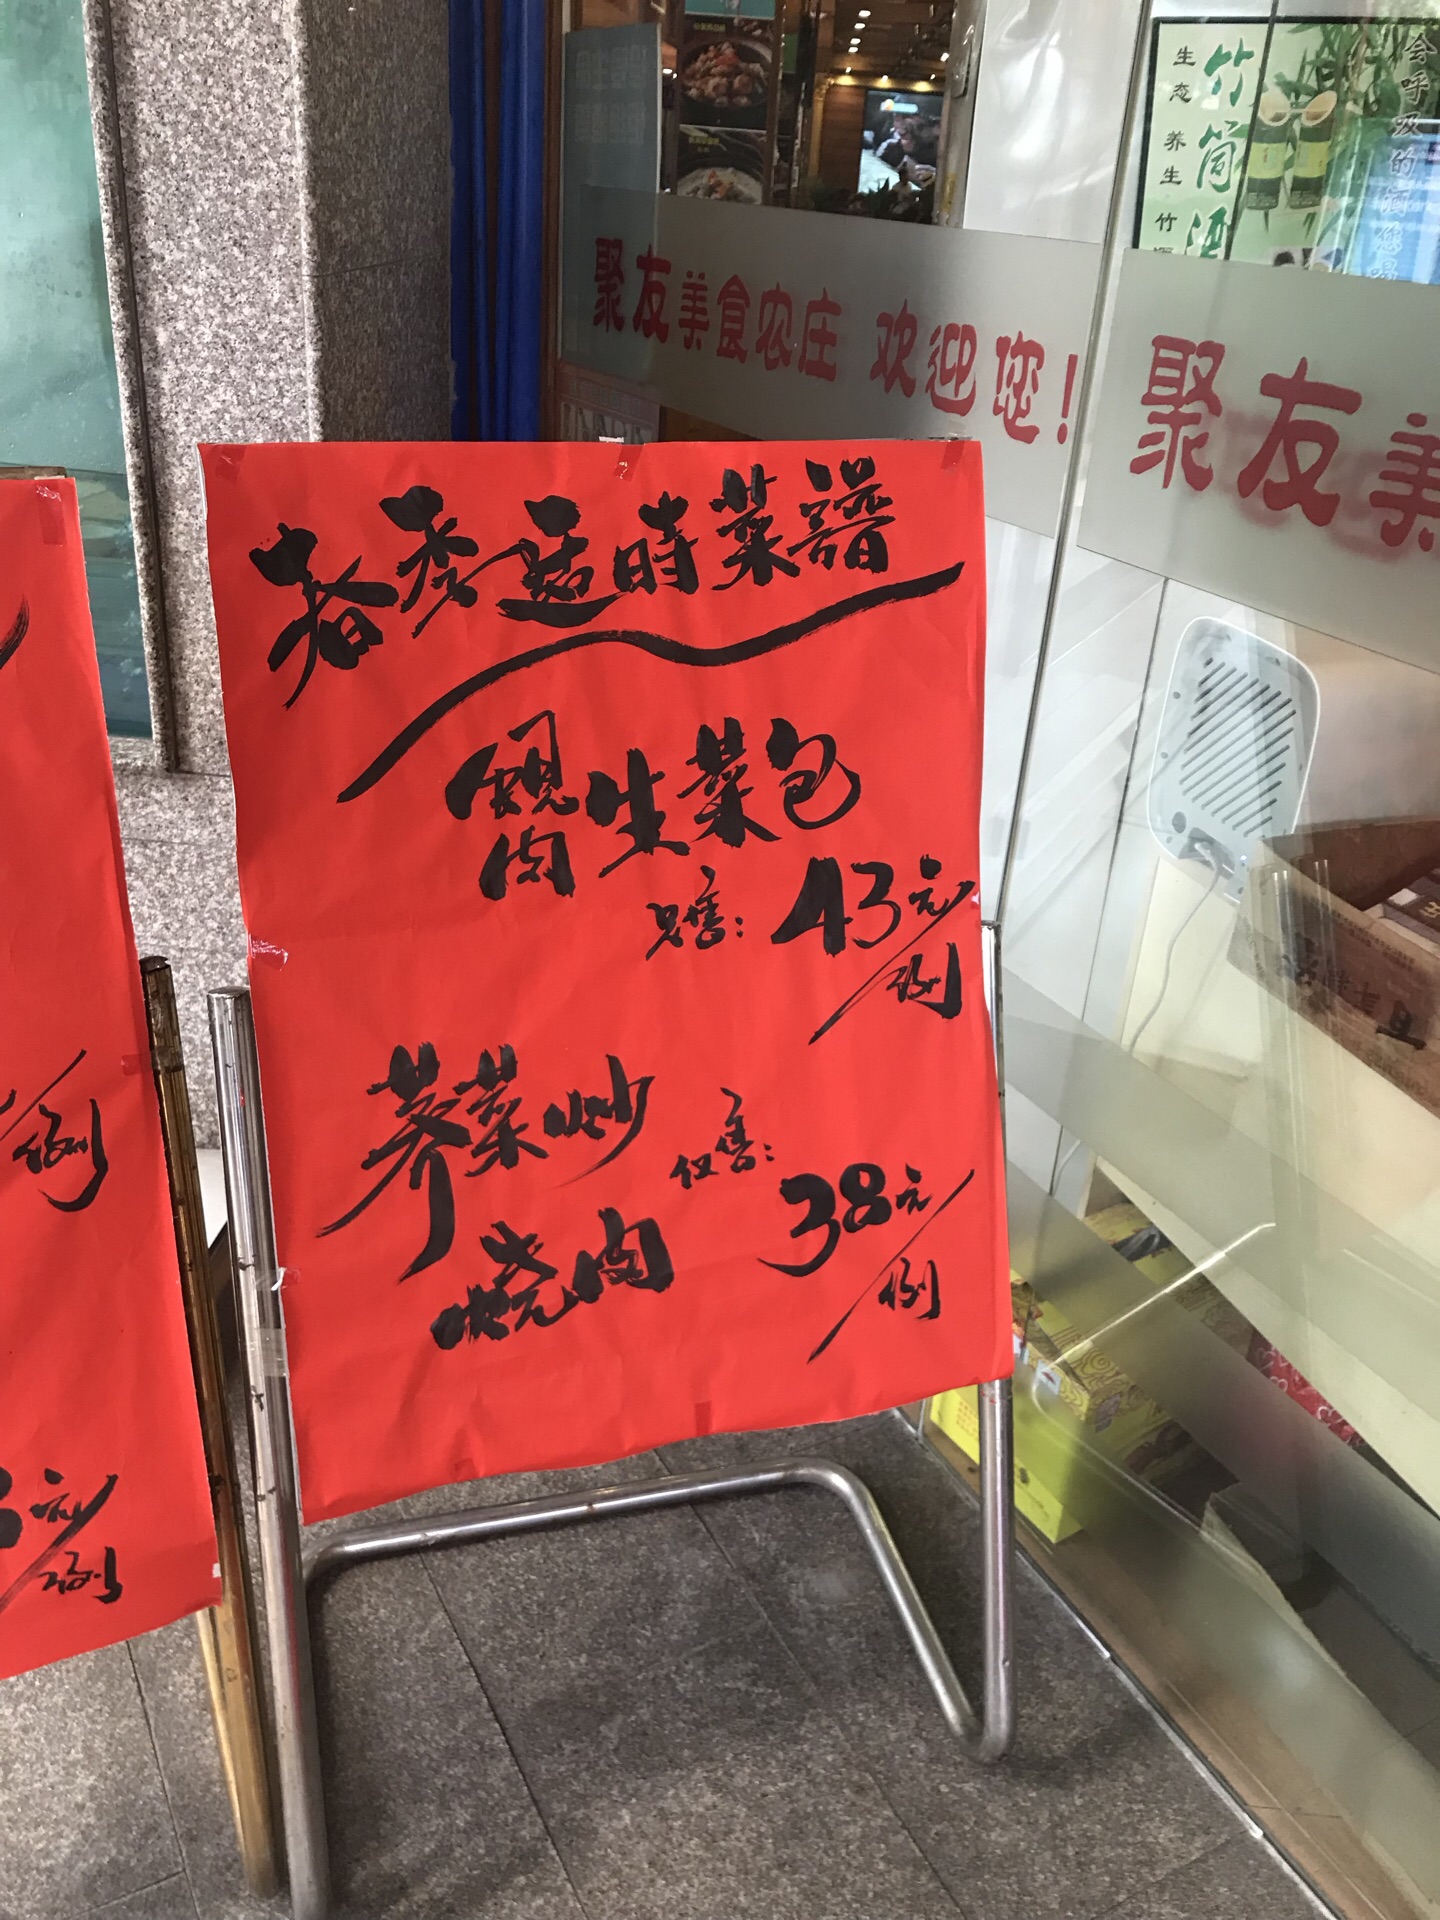 生态养生竹
竹筒酒
会呼吸的
聚友美食农庄 欢迎您！
聚友美
春季适時菜譜
蚬肉生菜包
只售：43元/例
荞菜炒
烧肉
仅售：38元/例
例
元/例